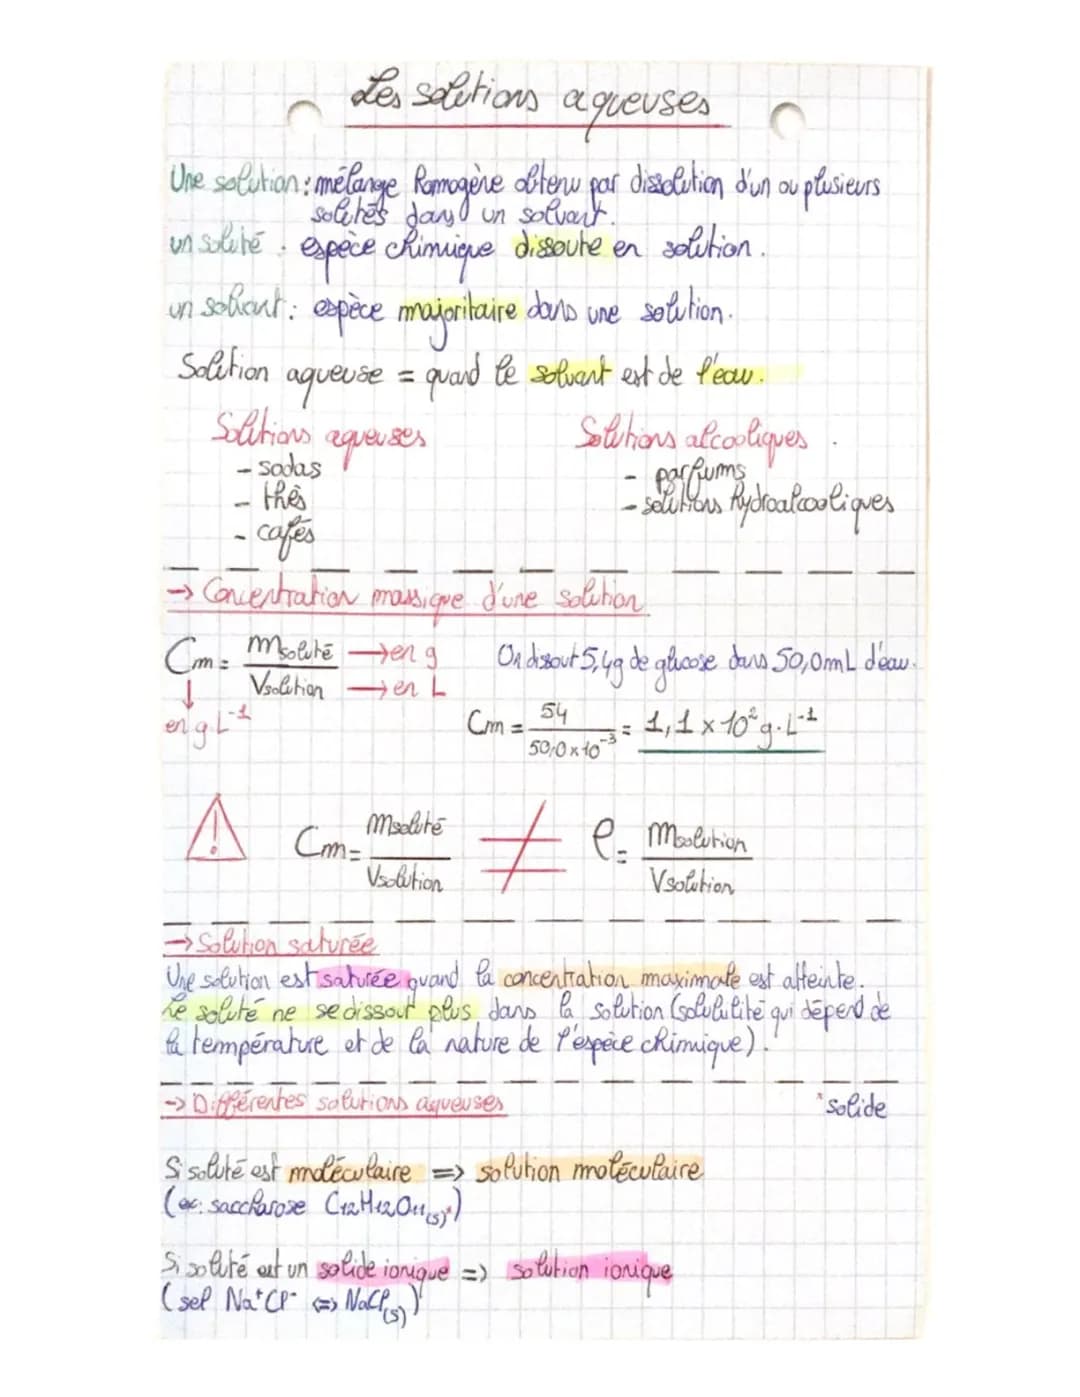 Les solutions aqueuses
Une solution : mélange homogène obtenu par dissolution d'un ou plusieurs
solutés dans un solvant.
un soluté : espèce chimique dissoute en solution.
un solvant : espèce majoritaire dans une solution.
Solution aqueuse = quand le solvant est de l'eau.
Solutions aqueuses
- sodas
- thès
- cafés
Solutions alcooliques.
- parfums
- solutions hydroalcooliques
→ Concentration massique d'une solution
Cm = msoluté / Vsolution → en g → en L
↓
en g.L⁻¹
On dissout 5,4g de glucose dans 50,0 mL d'eau.
Cm = 54 / 50,0 x 10⁻³ = 1,1 x 10² g.L⁻¹
! Cm = msoluté / Vsolution ≠ ρ = msolution / Vsolution
→ Solution saturée
Une solution est saturée quand la concentration maximale est atteinte.
Le soluté ne se dissout plus dans la solution (solubilité qui dépend de
la température et de la nature de l'espèce chimique).
→ Différentes solutions aqueuses
*solide
Si soluté est moléculaire => solution moléculaire
(ex: saccharose C12H12O11(s)*)
Si soluté est un solide ionique => solution ionique
(sel Na⁺Cl⁻ <=> NaCl(s))